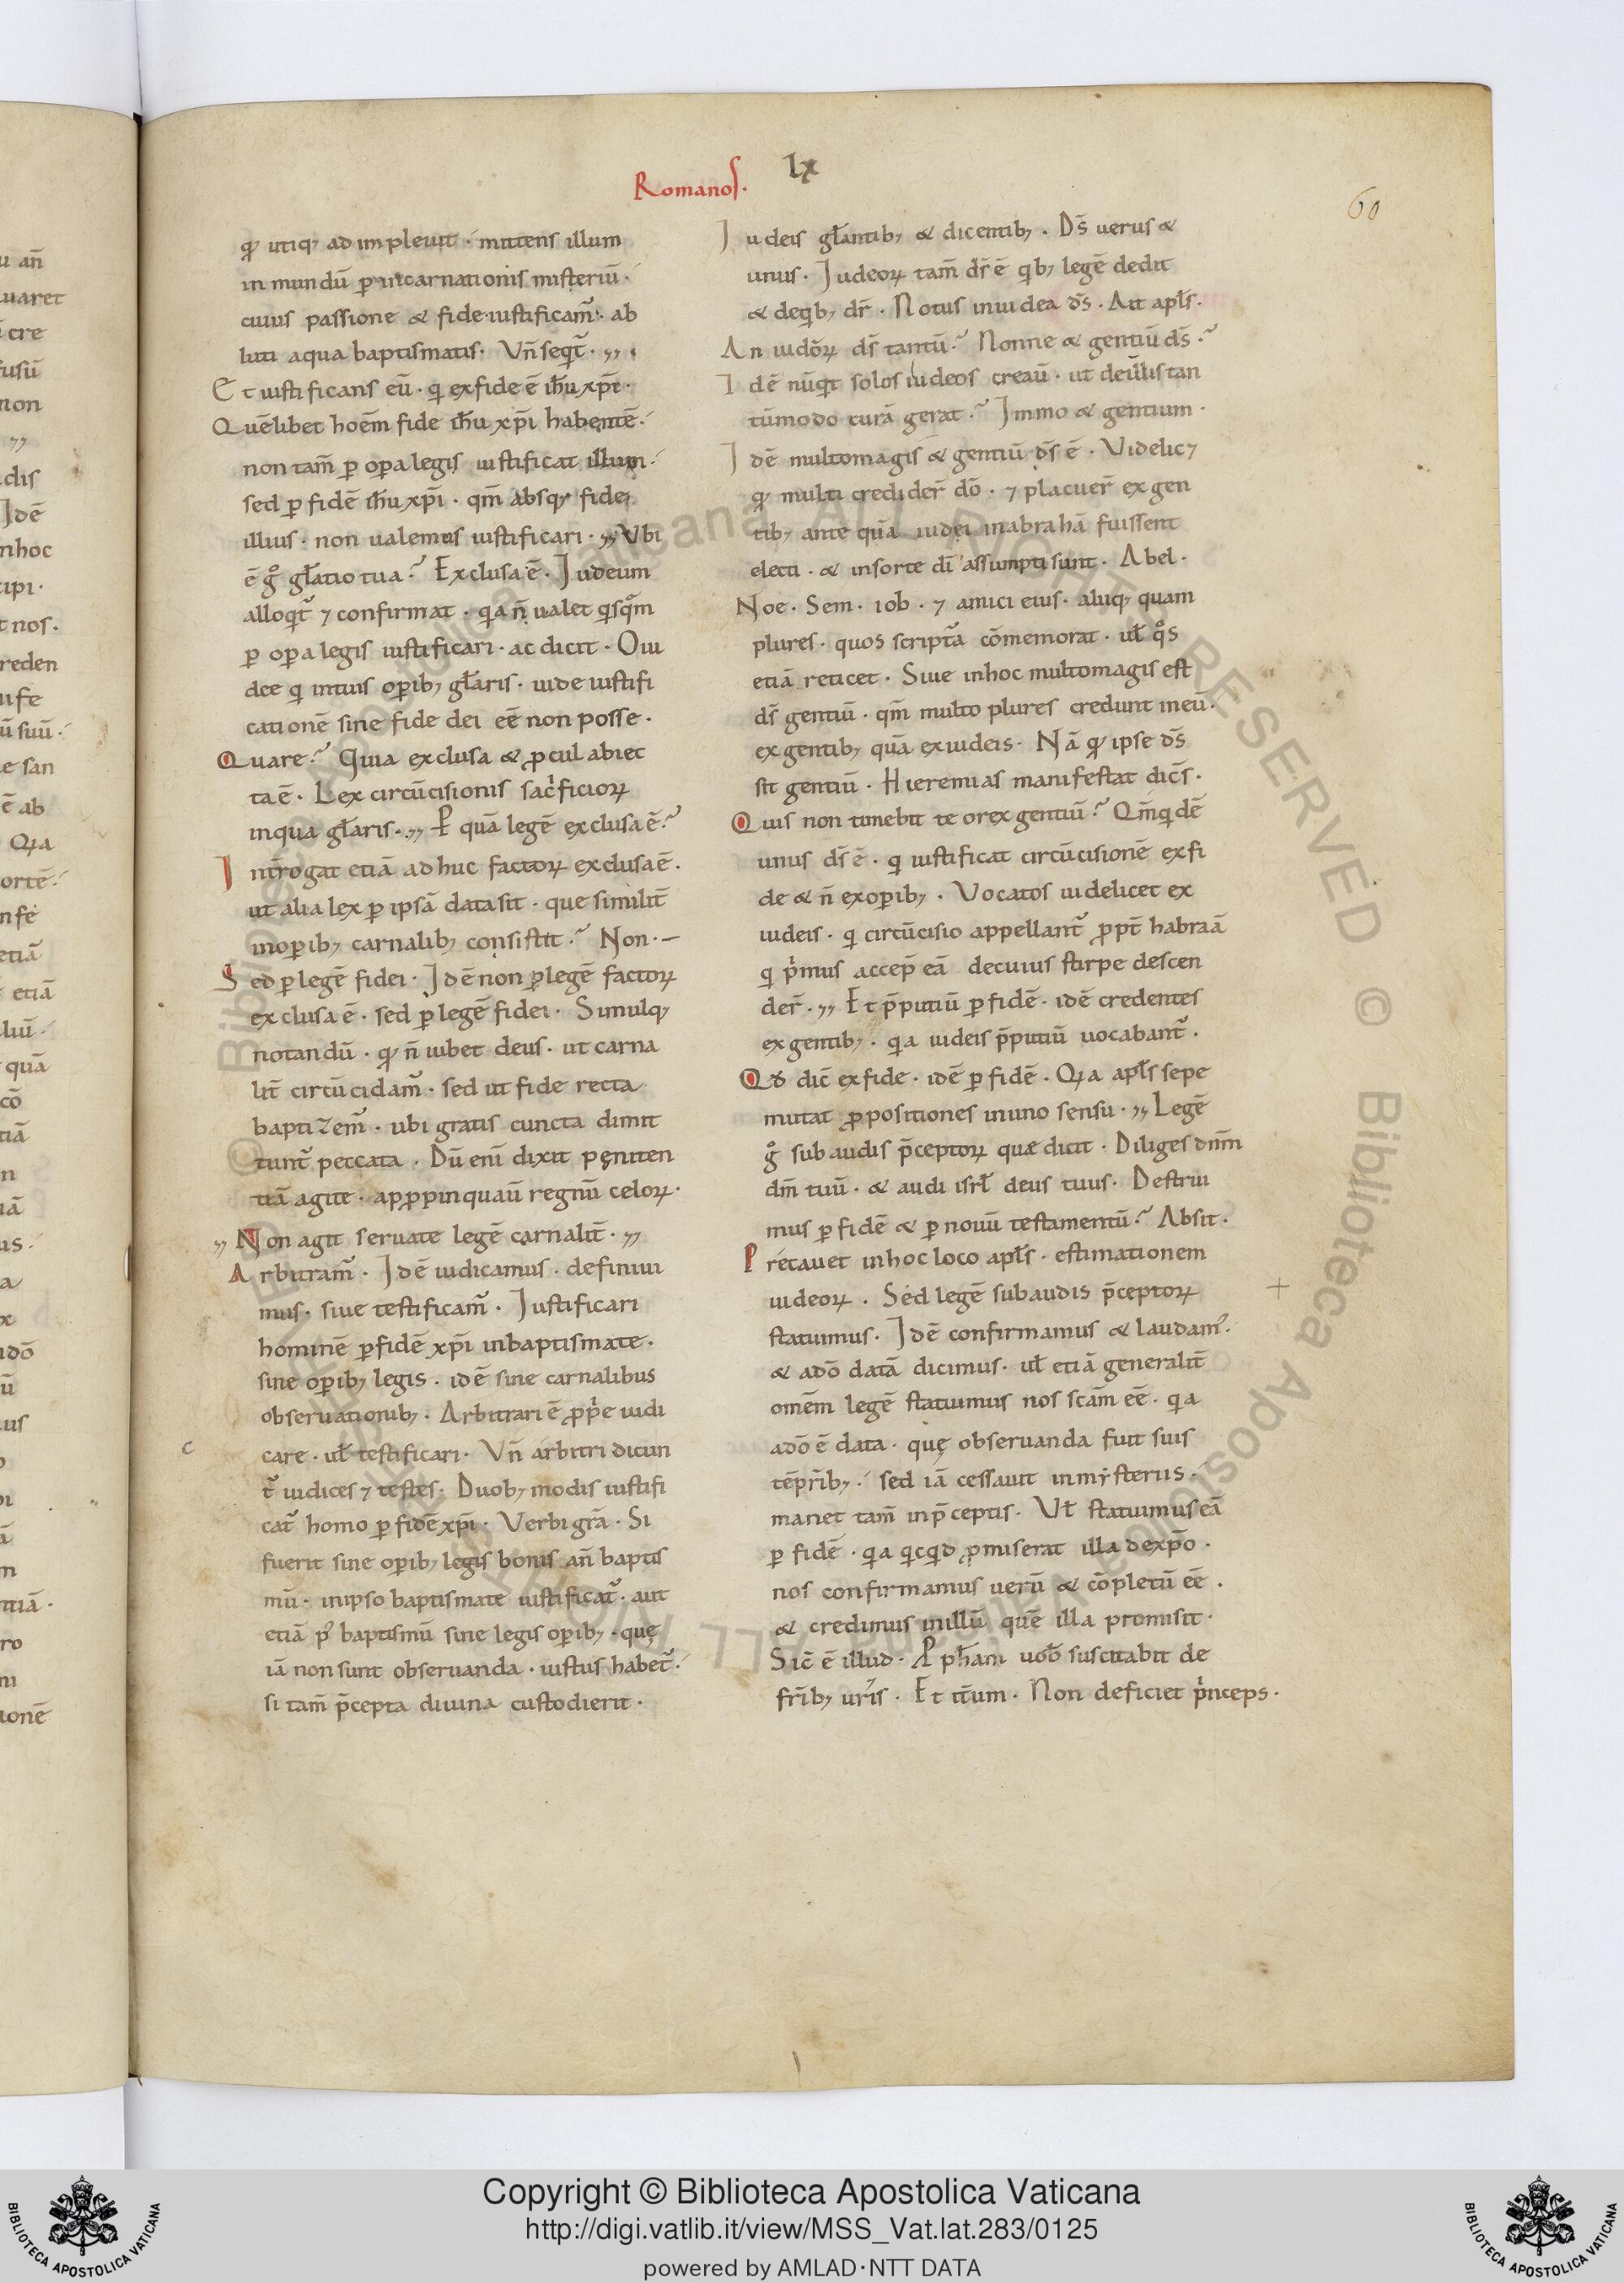 Romanoſ.
lx
60
ꝙ utiq; adimpleuit. mittens illum
in mundū ꝑ incarnationis misteriū.
cuius passione & fide iustificam̃. ab
luti aqua baptismatis. Vn̄ seqt̃.
Et iustificans eū. qi ex fide ē ih̅u xp̅i.
Quēlibet hoēm fide ih̅u xp̅i habentē.
non tam̄ ꝑ oꝑa legis iustificat illum.
sed ꝑ fidē ih̅u xp̅i. qm̄ absq; fide
illius. non ualemus iustificari. Vbi
ē gͦ gl̅atio tua? Exclusa ē. Iudeum
alloqt̃ ⁊ confirmat. qia n̄ ualet qisqͣm
ꝑ oꝑa legis iustificari. ac dicit. O iu
dee qi intuis oꝑib; gl̅aris. uide iustifi
cationē sine fide dei eē non posse.
Quare? Quia exclusa & ꝓcul abiec
ta ē. Lex circūcisionis sacͥficioꝝ
inqua gl̅aris. Ꝑ quā legē exclusa ē?
Int̄rogat etiā adhuc factoꝝ exclusa ē.
ut alia lex ꝑ ipsā data sit. que similit̄
inoꝑib; carnalib; consistit? Non.
Sed ꝑ legē fidei. Idē non ꝑ legē factoꝝ
exclusa ē. sed ꝑ legē fidei. Simulq;
notandū. ꝙ n̄ iubet deus. ut carna
lit̄ circūcidam̃. sed ut fide recta
baptizem̃. ubi gratis cuncta dimit
tunt̃ peccata. Dū eni dixit pęniten
tiā agite. apꝓpinquaū regnū celoꝝ.
Non agit seruate legē carnalit̄.
Arbitram̃. Idē iudicamus. definiui
mus. siue testificam̃. Iustificari
hominē ꝑ fidē xp̅i inbaptismate.
sine oꝑib; legis. idē sine carnalibus
obseruationib;. Arbitrari ē ꝓpͥe iudi
care. ul̅ testificari. Vn̄ arbitri dicun
t̃ iudices ⁊ testes. Duob; modis iustifi
cat̃ homo ꝑ fidē xp̅i. Verbi grā. Si
fuerit sine oꝑib; legis bonis an̄ baptis
mū. inipso baptismate iustificat̃. aut
etiā pꝰ baptismū sine legis oꝑib;. quę
iā non sunt obseruanda. iustus habet̃.
si tam̄ p̄cepta diuina custodierit.
c
Iudeis gl̅antib; & dicentib;. D̅s uerus &
unus. Iudeoꝝ tam̄ d̅s ē qib; legē dedit
& deqib; dr̄. Notus iniudea d̅s. Ait apl̅s.
An iudōꝝ d̅s tantū? Nonne & gentiū d̅s?
Idē nūqit solos iudeos creauit. ut deillis tan
tūmodo curā gerat? Immo & gentium.
Idē multomagis & gentiū d̅s ē. Videlic⁊
ꝙ multi credider̄ dō. ⁊ placuer̄ ex gen
tib; ante quā iudei inabrahā fuissent
electi. & insorte di assumpti sunt. Abel.
Noe. Sem. iob. ⁊ amici eius. aliiq; quam
plures. quos scriptͣa cōmemorat. ul̅ qͦs
etiā reticet. Siue inhoc multomagis est
d̅s gentiū. qm̄ multo plures credunt ineū.
ex gentib; quā exiudeis. Nā ꝙ ipse d̅s
sit gentiū. Hieremias manifestat dic̄s.
Quis non timebit te o rex gentiū? Qm̄qidē
unus d̅s ē. qi iustificat circūcisionē exfi
de & n̄ exoꝑib;. Vocatos uidelicet ex
iudeis. qi circūcisio appellant̃ ꝓpt̄ habraā
qi pͥmus accep̄ eā decuius stirpe descen
der̄. Et p̄putiū ꝑ fidē. idē credentes
ex gentib;. qia iudeis p̄putiū uocabant̃.
Qd̄ dic̄ ex fide. idē ꝑ fidē. Qia apl̅s sepe
mutat ꝓpositiones inuno sensu. Legē
gͦ subaudis p̄ceptoꝝ quæ dicit. Diliges dnm̄
dm̄ tuū. & audi isrl̅ deus tuus. Destrui
mus ꝑ fidē & ꝑ nouū testamentū? Absit.
Precauet inhoc loco apl̅s. estimationem
iudeoꝝ. Sed legē subaudis p̄ceptoꝝ
statuimus. Idē confirmamus & laudam̃.
& adō datā dicimus. ul̅ etiā generalit̄
omēm legē statuimus nos scām eē. qia
adō ē data. quę obseruanda fuit suis
tēpr̄ib;. sed iā cessauit inmẏsteriis.
manet tam̄ inp̄ceptis. Vl̅ statuimus eā
ꝑ fidē. qia qicqid ꝓmiserat illa dexp̅o.
nos confirmamus uerū & cōpletū eē.
& credimus inillū quē illa promisit.
Sic̄ ē illud. ꝓph̅am uob̅ suscitabit de
fr̄ib; ur̄is. Et it̄um. Non deficiet pͥnceps.
+
u an̄
uaret
cre
fusū
non
dis
Idē
nhoc
cipi.
t nos.
reden
ife
ū suū.
e san
ē ab
Qia
ortē.
nfe
etiā
etiā
liū.
quā
cō
tiā
n
iā
us.
a
x
idō
ū
ius
titiā.
ro
ni
ionē
© Biblioteca Apostolica Vaticana ALL RIGHTS RESERVED
Copyright © Biblioteca Apostolica Vaticana
http://digi.vatlib.it/view/MSS_Vat.lat.283/0125
powered by AMLAD·NTT DATA
BIBLIOTECA APOSTOLICA VATICANA
BIBLIOTECA APOSTOLICA VATICANA